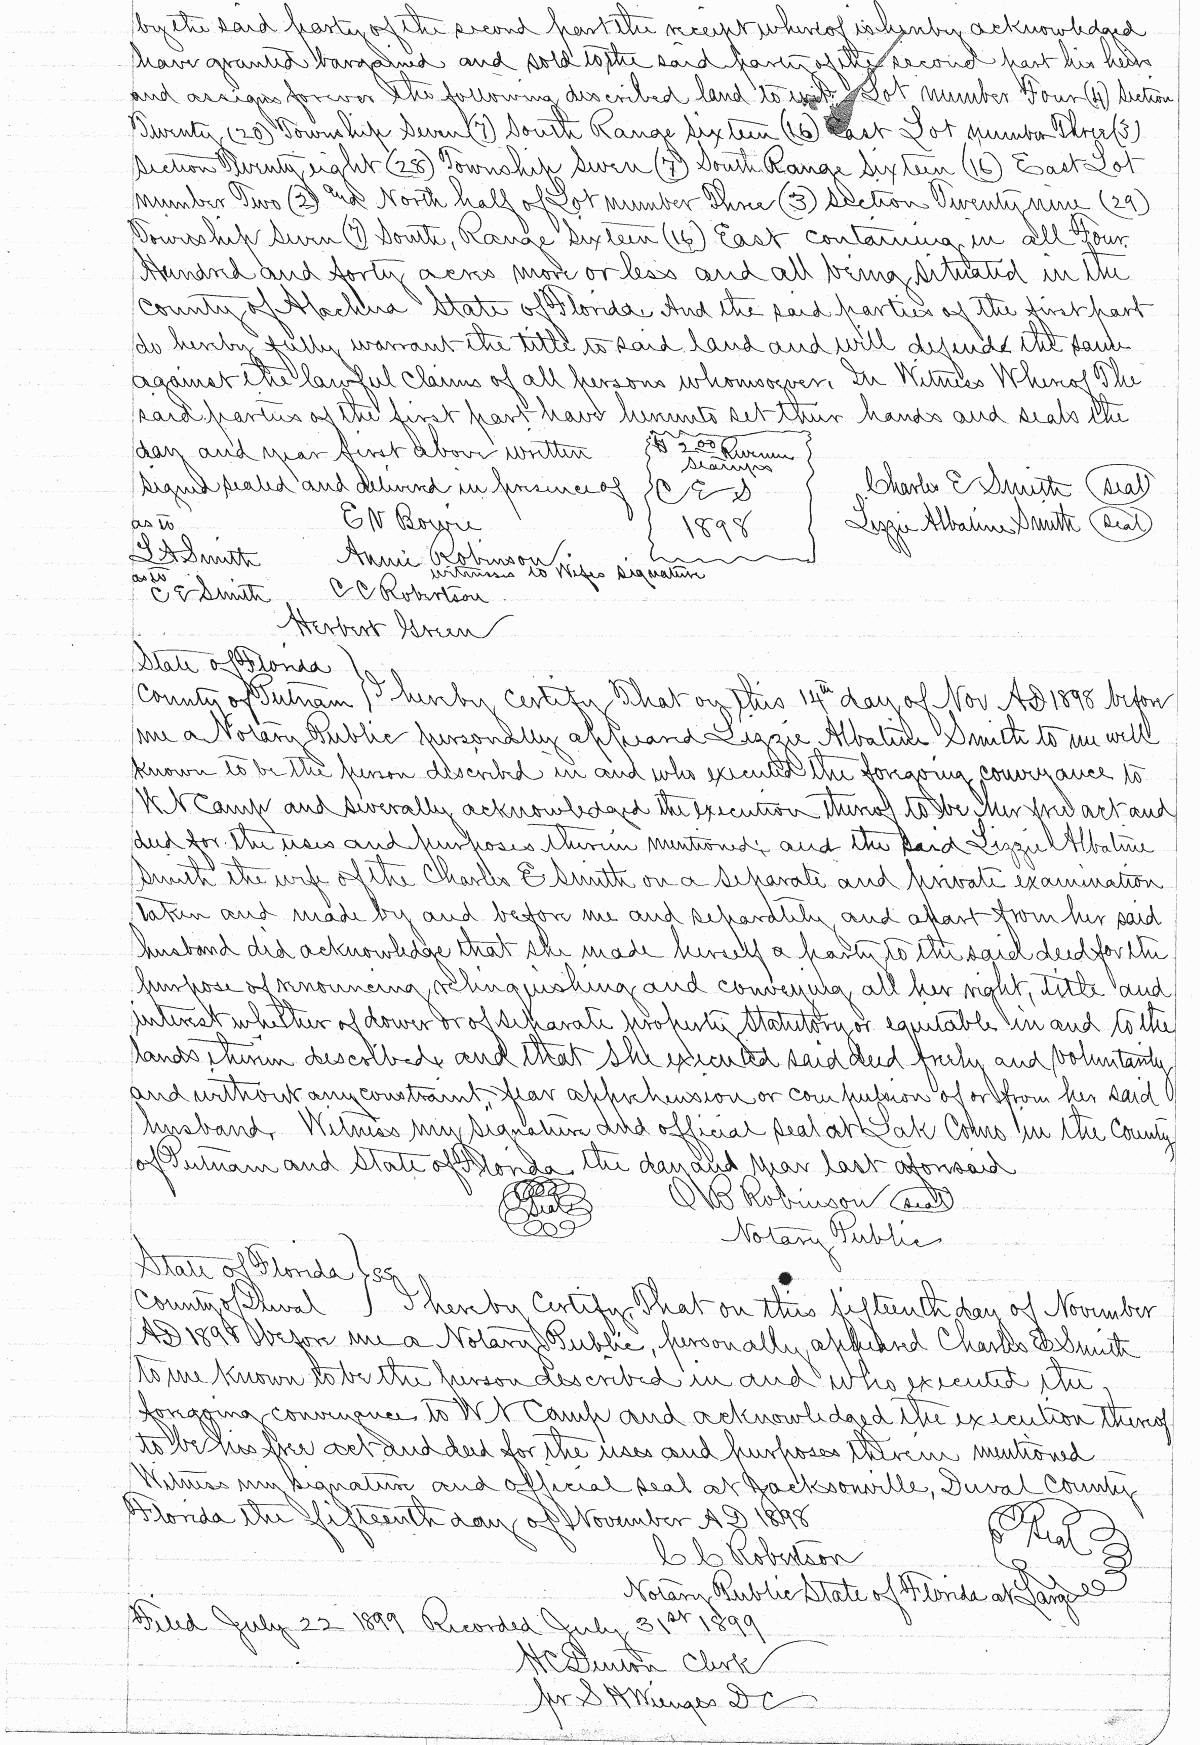 by the said party of the second part the receipt whereof is hereby acknowledged
have granted bargained and sold to the said party of the second part his heirs
and assigns forever the following described land to wit: Lot number Four (4) Section
Twenty (20) Township Seven (7) South Range Sixteen (16) East Lot number Three (3)
Section Twenty eight (28) Township Seven (7) South Range Sixteen (16) East Lot
number Two (2) and North half of Lot number Three (3) Section Twenty nine (29)
Township Seven (7) South, Range Sixteen (16) East containing in all Four
Hundred and forty acres more or less and all being situated in the
County of Alachua State of Florida. And the said parties of the first part
do hereby fully warrant the title to said land and will defend the same
against the lawful claims of all persons whomsoever. In Witness Whereof The
said parties of the first part have hereunto set their hands and seals the
day and year first above written
$2.00 Revenue
Stamps
Signed sealed and delivered in presence of
C E S
1898
Charles E Smith (seal)
Lizzie Albatine Smith (seal)
as to
L A Smith
E N Bowie
Annie Robinson
witnesses to Wifes signature
as to
C E Smith
C C Robertson
Herbert Green
State of Florida }
County of Putnam } I hereby certify That on this 14th day of Nov AD 1898 before
me a Notary Public personally appeared Lizzie Albatine Smith to me well
known to be the person described in and who executed the foregoing conveyance to
W N Camp and severally acknowledged the execution thereof to be her free act and
deed for the uses and purposes therein mentioned; and the said Lizzie Albatine
Smith the wife of the Charles E Smith on a separate and private examination
taken and made by and before me and separately and apart from her said
husband did acknowledge that she made herself a party to the said deed for the
purpose of renouncing, relinquishing and conveying all her right, title and
interest whether of dower or of separate property, statutory or equitable in and to the
lands therein described, and that she executed said deed freely and voluntarily
and without any constraint, fear apprehension or compulsion of or from her said
husband. Witness my signature and official seal at Lak Como in the County
of Putnam and State of Florida the day and year last aforesaid
Seal
O B Robinson (seal)
Notary Public
State of Florida } ss
County of Duval } I hereby Certify, That on this fifteenth day of November
AD 1898 before me a Notary Public, personally appeared Charles E Smith
to me known to be the person described in and who executed the
foregoing conveyance to W N Camp and acknowledged the execution thereof
to be his free act and deed for the uses and purposes therein mentioned
Witness my signature and official seal at Jacksonville, Duval County
Florida the fifteenth day of November AD 1898
Seal
C C Robertson
Notary Public State of Florida at Large
Filed July 22 1899 Recorded July 31st 1899
H C Denton Clerk
per S H Wienges D C